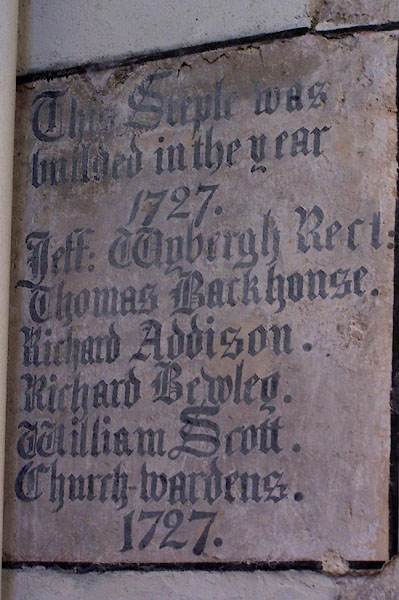 This Steple was
builded in the year
1727.
Jeff: Wybergh Rect:
Thomas Backhouse.
Richard Addison.
Richard Bewley.
William Scott.
Church-wardens.
1727.